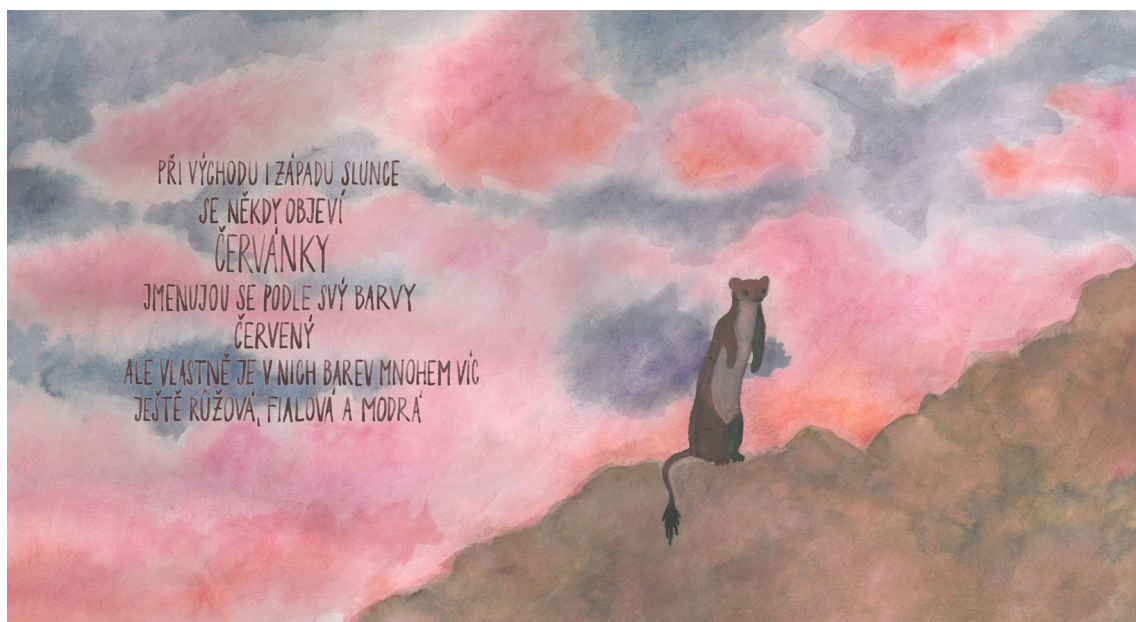 PŘI VÝCHODU I ZÁPADU SLUNCE
SE NĚKDY OBJEVÍ
ČERVÁNKY
JMENUJOU SE PODLE SVÝ BARVY
ČERVENÝ
ALE VLASTNĚ JE V NICH BAREV MNOHEM VÍC
JEŠTĚ RŮŽOVÁ, FIALOVÁ A MODRÁ